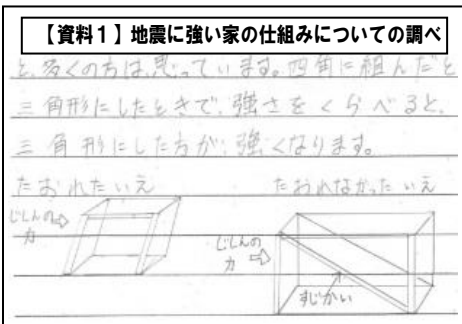 【資料1】地震に強い家の仕組みについての調べ
と、多くの方は、思っています。四角に組んだと
三角形にしたときで、強さをくらべると、
三角形にした方が、強くなります。
たおれたいえ
たおれなかったいえ
じしんの
力
じしんの
力
すじかい